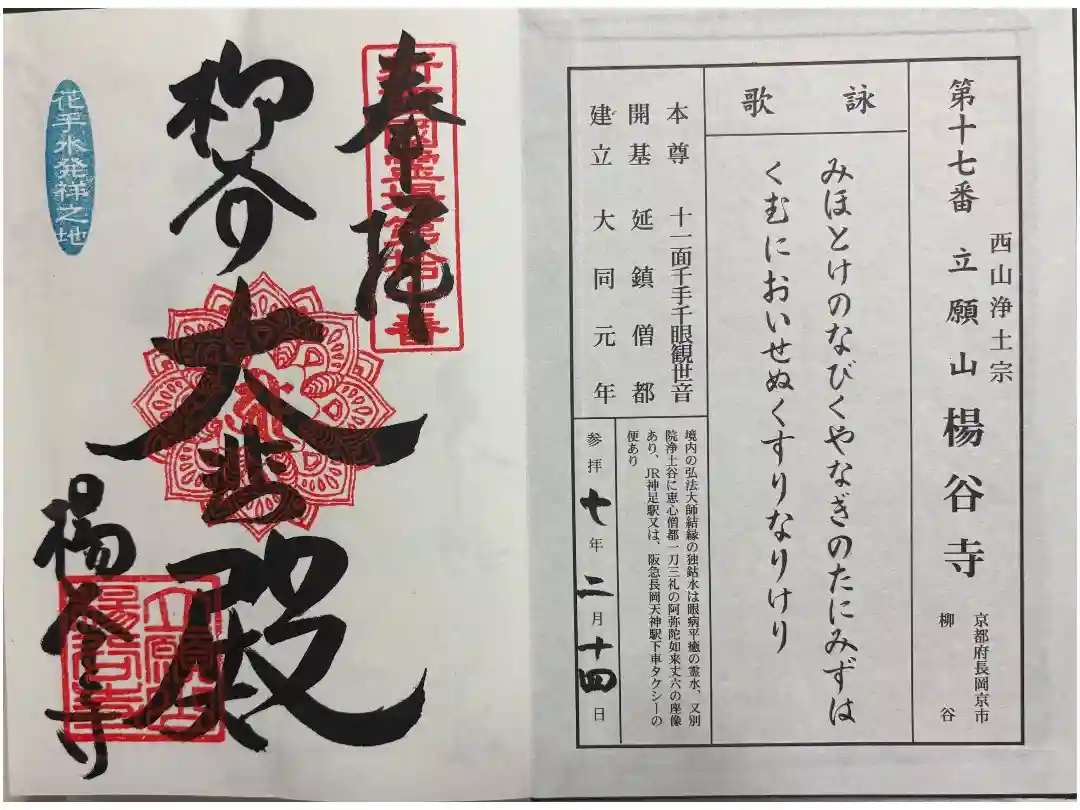 第十七番 立願山 楊谷寺
西山浄土宗
京都府長岡京市
柳谷
詠歌
みほとけのなびくやなぎのたにみずは
くむにおいせぬくすりなりけり
本尊 十一面千手千眼観世音
開基 延鎮僧都
建立 大同元年
境内の弘法大師結縁の独鈷水は眼病平癒の霊水、又別
院浄土谷に恵心僧都一刀三礼の阿弥陀如来丈六の座像
あり、JR神足駅又は、阪急長岡天神駅下車タクシーの
便あり
参拝 七年二月十四日
奉拝
新西國霊場第拾七番
柳谷
大悲殿
楊谷寺
立願山
楊谷寺
花手水発祥之地